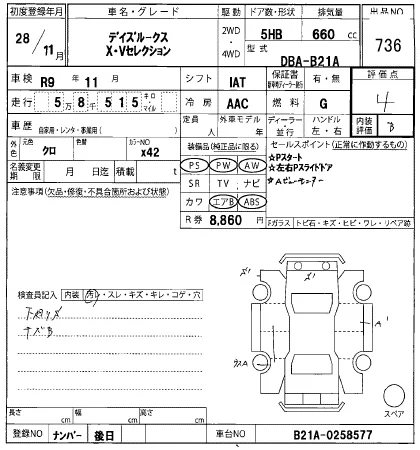 初度登録年月 車名・グレード 駆動 ドア数・形状 排気量 出品NO
28/11月 デイズルークス X・Vセレクション 2WD・4WD 5HB 660 cc 736
型式 DBA-B21A
車検 R9 年 11 月 シフト IAT 保証書 有・無 評価点
走行 5万8千515 キロ・マイル 冷房 AAC 燃料 G 4
車歴 自家用・レンタ・事業用( ) 定員 人 外車モデル 年 ディーラー・並行 ハンドル 左・右 内装評価 B
外色 元色 クロ 色替 カラーNO x42 装備品(純正品に限る) セールスポイント(正常に作動するもの)
PS PW AW ☆Pスタート
名義変更期限 月 日迄 積載 t SR TV ナビ ☆左右Pスライドドア
注意事項(欠品・修復・不具合箇所および状態) カワ エアB ABS ☆Aビューモニター
R券 8,860円 Fガラス トビ石・キズ・ヒビ・ワレ・リペア跡
検査員記入 内装 汚・スレ・キズ・キレ・コゲ・穴
キズB
A'
スペア
長さ cm 幅 cm 高さ cm
登録NO ナンバー 後日 車台NO B21A-0258577